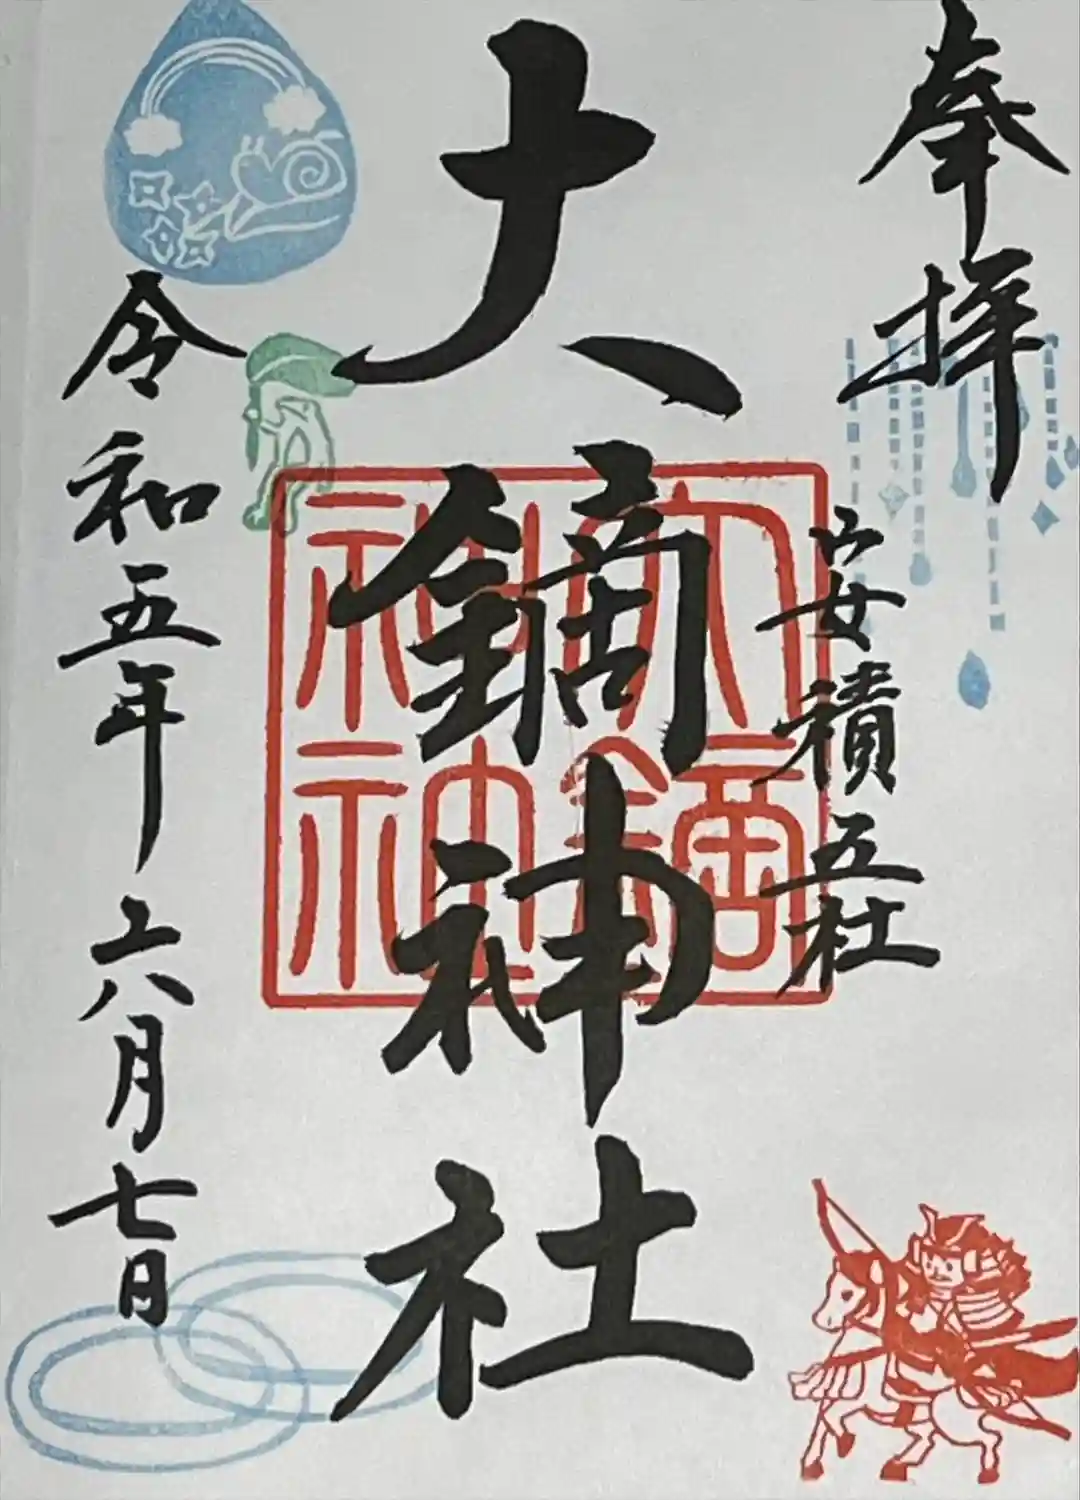 奉拝
安積五社
大鏑神社
大鏑神社
令和五年六月七日